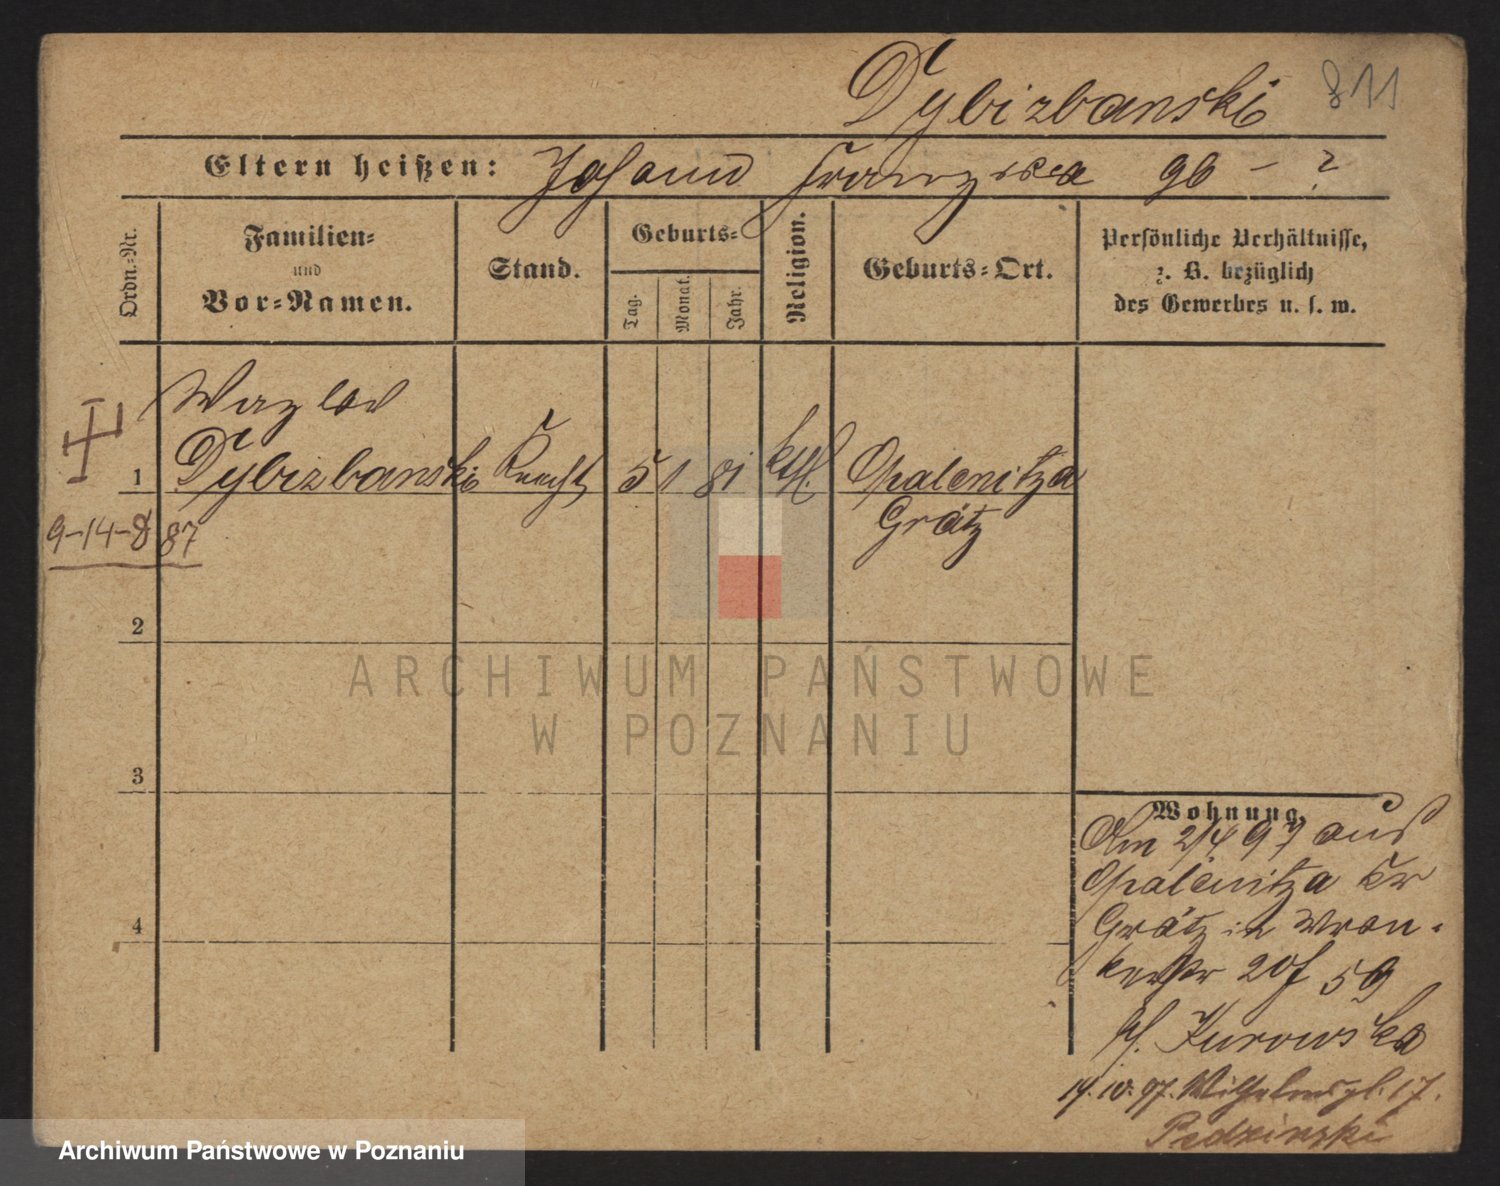 Dybizbanski 811
Eltern heißen: Johann Franziska 96 - ?
Ordn.-Nr.
Familien-
und
Vor-Namen.
Stand.
Geburts-
Tag.
Monat.
Jahr.
Religion.
Geburts-Ort.
Persönliche Verhältnisse,
z. B. bezüglich
des Gewerbes u. s. w.
Wazlav
1 Dybizbanski Knecht 5 1 81 kth. Opalenitza
Grätz
9-14-8 87
2
3
4
Wohnung.
Am 2/4 97 aus
Opalenitza Kr
Grätz in Wron-
kerstr 20 f 59
Kurowska
14.10.97. Wilhelmspl. 17.
Pedzinski
ARCHIWUM PAŃSTWOWE
W POZNANIU
Archiwum Państwowe w Poznaniu